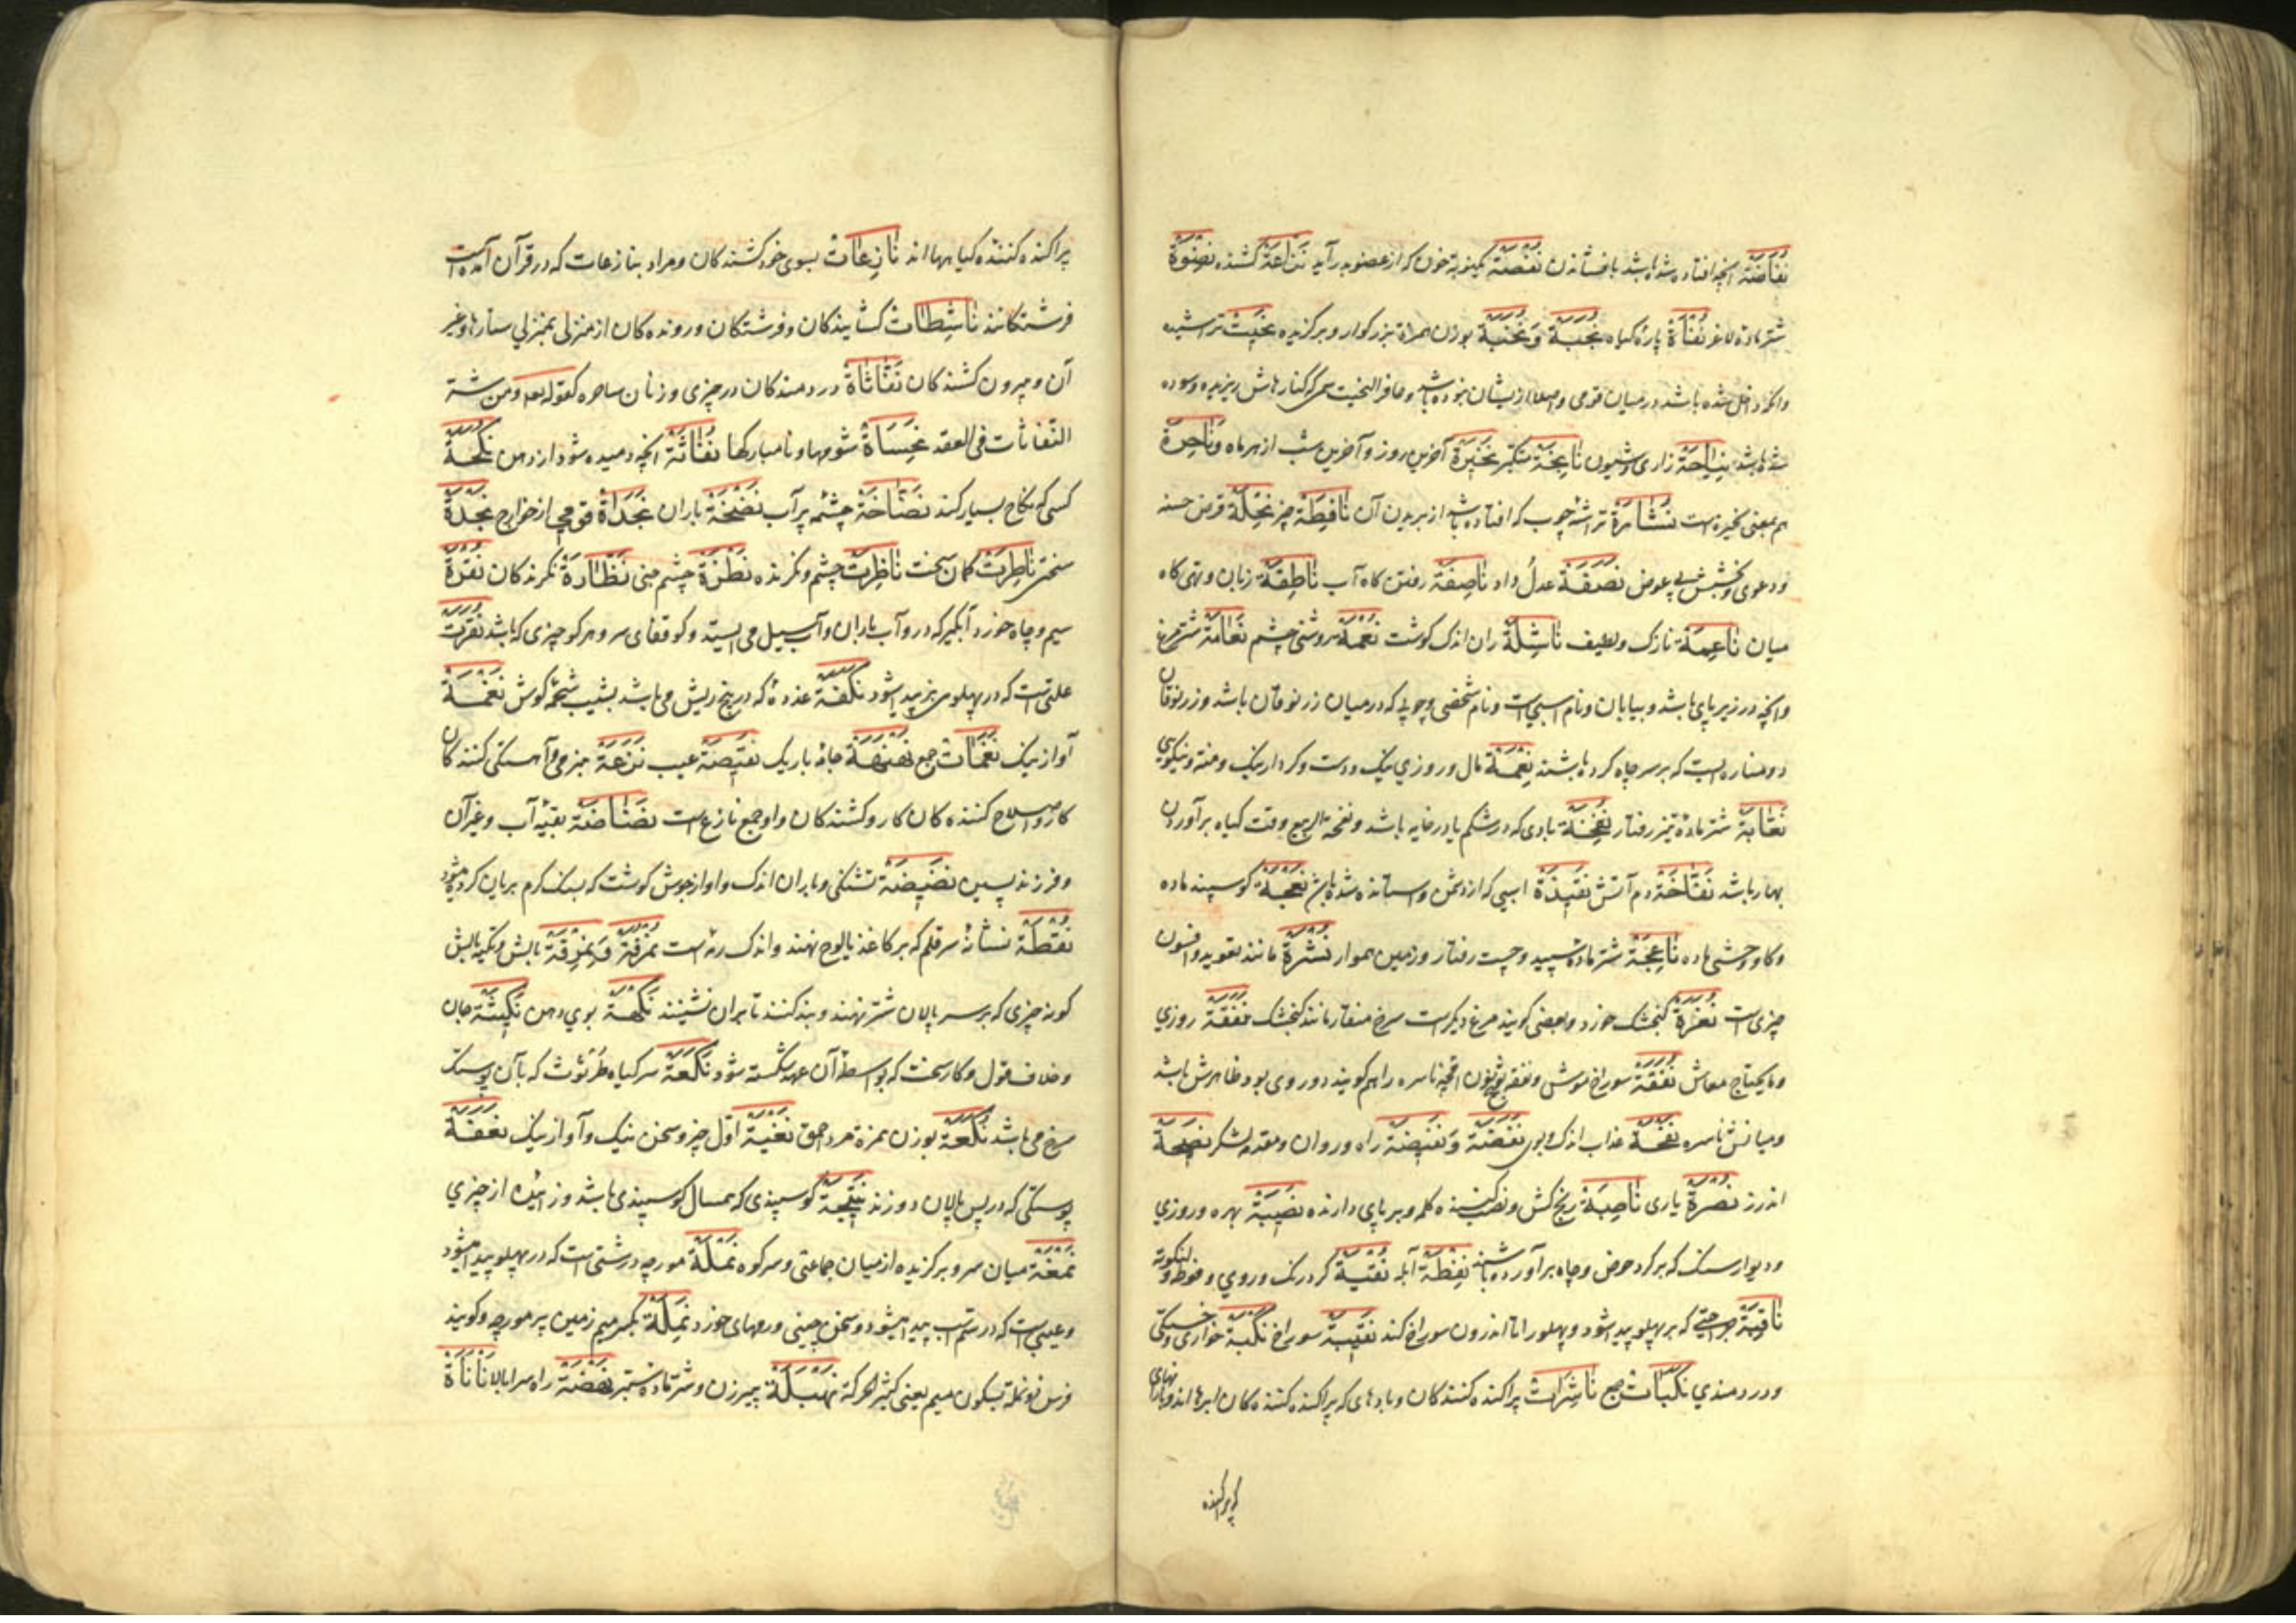 نُفَاضَة آنچه افتاده شده باشد بافشاندن نَزَّاعَة کشنده نِضْوَة
شتر ماده لاغر پارهٔ گیاه نُجَبَة وَ نُخَبَة بوزن همزة بزرگوار و برگزیده نَحِیت تراشیده
وانکه داخل شده باشد در میان قومی و اصلا از ایشان نبوده باشد و حافر النحیت سمی که کنارهاش ریزیده و سوده
شده باشد نِیَاحَة زاری و شیون متکبر نَحِیرَة آخرین روز و آخرین شب از هر ماه وَ نَاحِرَة
هم بمعنی نحیره است تراشهٔ چوب که افتاده باشد از بریدن آن نَافِطَة بز نِحْلَة قرض حسنه
و دعوی و بخشش بی عوض نَصَفَة عدل و داد نَاصِفَة رفتن گاه آب نَاطِقَة زبان و تهی گاه
میان نَاعِمَة نازک و لطیف نَاشِلَة ران اندک گوشت نُعْمَة روشنی چشم نَعَامَة شتر مرغ
وانچه در زیر پای باشد و بیابان و نام اسبی است و نام شخصی و چوبی که در میان زرنوقان باشد و زرنوقان
دو مناره ایست که بر سر چاه کرده باشند نِعْمَة مال و روزی نیک و دست و کردار نیک و منة و نیکویی
شتر ماده تیز رفتار نَفْخَة بادی که در شکم یا در خایه باشد و نفخة الربیع وقت گیاه برآوردن
بهار باشد نَفَّاخَة دم آتش نَقِیذَة اسبی که از دشمن واستانده شده باشد نَعْجَة گوسپند ماده
و گاو وحشی ماده نَاعِجَة شتر ماده سپید و چست رفتار و زمین هموار نُشْرَة مانند تعویذ و افسون
چیزی است نُغَرَة گنجشک خورد و بعضی گویند مرغ دیگر است سرخ منقار مانند گنجشک نَفَقَة روزی
وما یحتاج معاش نُفَقَة سوراخ موش
و میانش ناسره نَفْحَة عذاب اندک و بوی نَفَضَة وَ نَفِیضَة راه وروان و مقدمه لشکر نَصِیحَة
اندرز نُصْرَة یاری نَاصِبَة رنج کش و نصب کننده کلمه و برپای دارنده نَصِیبَة بهره و روزی
و دیوار سنگ که بر گرد حوض و چاه برآورده باشند نَفِطَة آبله نُقْبَة گرد رنگ و روی و فوطه و لنگوته
نَاقِبَة جراحتی که بر پهلو پیدا شود و پهلو را تا اندرون سوراخ کند نَقِیبَة سوراخ نَکْبَة خواری و خستگی
و دردمندی نَکَبَات جمع نَاشِرَات پراکنده کنندگان و بادهای که پراکنده کننده کان ابرها اند و بارانهای
که پراکنده
پراکنده کننده کیا بهااند نَازِعَات بسوی خود کشندکان و مراد بنازعات که در قرآن آمده است
فرشتکانند نَاشِطَات کشایندکان و فرشتکان و رونده کان از منزلی بمنزلی ستارها و غیر
آن و بیرون کشندکان نَفَّاثَاة در دمندکان در چیزی و زنان ساحره کقوله تعه ومن شر
النّفاثات فی العقد نَحِسَاة شومها و نامبارکها نُفَاثَة انچه دمیده شود از دهن نُکَحَة
کسی که نکاح بسیار کند نَضَّاخَة چشمه پر آب نَضْخَة باران نَجَدَاة قومی از خوارج نَجْدَة
سختی نَاطِرَة کمان سخت نَاظِرَة چشم و نگرنده نَظْرَة چشم بینی نَظَّارَة نگرندکان نُقْرَة
سیم و چاه خورد آبگیر که درو آب باران و آب سیل می ایستد و کو قفای سر و هر کو چیزی که باشد نُقَرَة
علتی است که در پهلوی بز پیدا شود نَکَفَة غدهٔ که در بیخ ریش می باشد بشیب شحمهٔ گوش نَغْمَة
آواز نیک نَغَمَات جمع جامهٔ باریک نَقِیصَة عیب نَزَعَة
کار و اصلاح کننده کان کار و کشندکان و او جمع نازع است نُضَاضَة بقیهٔ آب و غیر آن
و فرزند پسین نَضِیضَة تشنکی و باران اندک و آواز جوش گوشت که بسنگ گرم بریان کرده میشود
نُقْطَة نشانهٔ سر قلم که بر کاغذ یا لوح نهند و اندک نُمْرُقَة وَ نِمْرِقَة بالش و تکیه بالش
کونه چیزی که بر سر پالان شتر نهند و بند کنند تا بران نشینند نَکْهَة بوی دهن نَکِیثَة جان
و خلاف قول و کار سخت که بواسطهٔ آن عهد شکسته شود نَکَعَة سر گیاه طرثوث که بآن پوست
سرخ می باشد نُکَعَة بوزن همزة مرد احمق نَغْیَة اول خبر و سخن نیک و آواز نیک
پوستکی که در پس پالان دوزند نَتِیجَة گوسپندی که همسال گوسپندی باشد و زائیده از چیزی
میان سر و برگزیده از میان جماعتی و سرکوه نَمْلَة مورچه و ریشی است که در پهلو پیدا میشود
و عیبی است که در سم اسب پیدا میشود و سخن چینی و مورچهای خورد نَمِلَة بکسر میم زمین پر مورچه و گویند
فرس ذو نملة بسکون میم یعنی کثیر الحرکة نَهْبَلَة پیر زن و شتر ماده ستبر نَهْضَة راه سر ابالا نَأْنَأَة